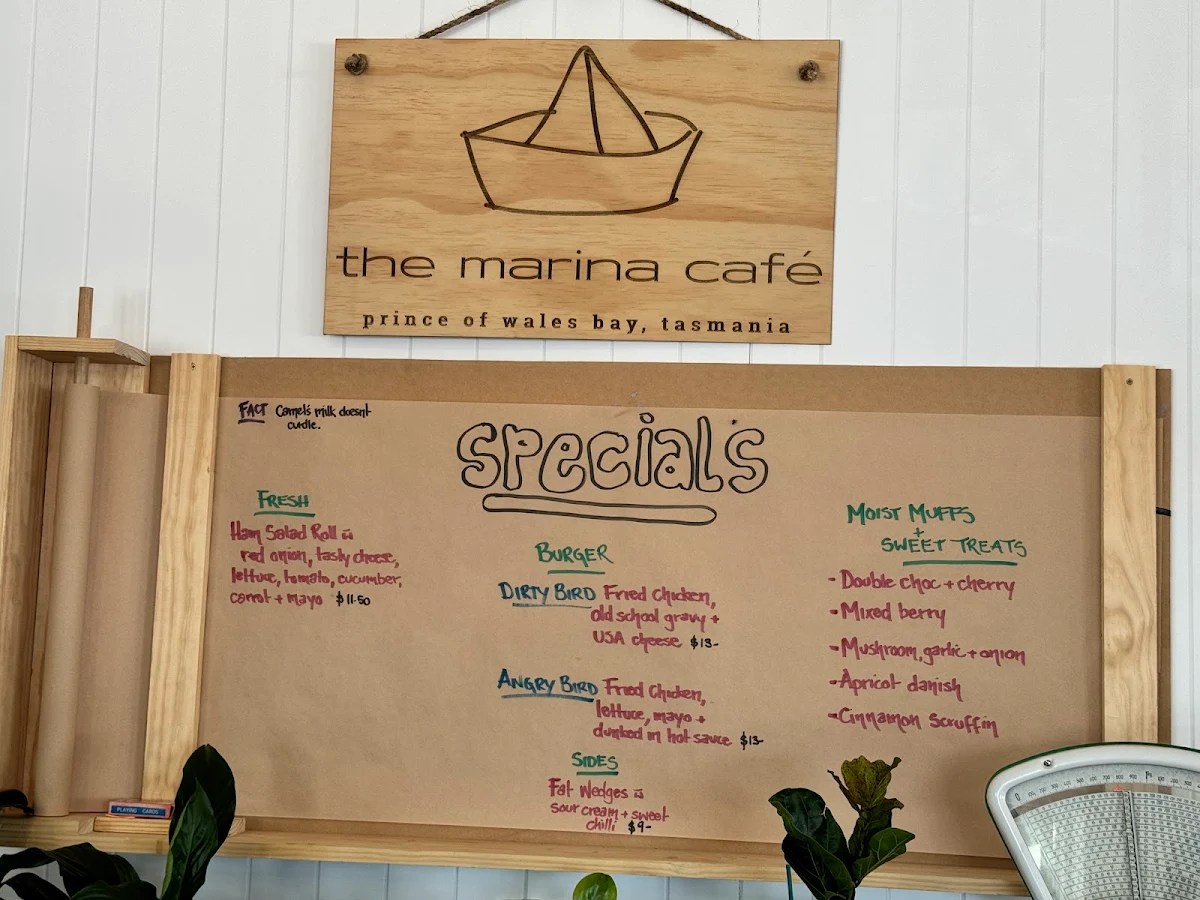 the marina café
prince of wales bay, tasmania
FACT Camel's milk doesnt
curdle.
specials
FRESH
Ham Salad Roll w
red onion, tasty cheese,
lettuce, tomato, cucumber,
carrot + mayo $11.50
BURGER
DIRTY BIRD Fried Chicken,
old school gravy +
USA cheese $13-
ANGRY BIRD Fried Chicken,
lettuce, mayo +
dunked in hot sauce $13-
SIDES
Fat Wedges w
sour cream + sweet
chilli $9-
MOIST MUFFS
+
SWEET TREATS
- Double choc + cherry
- Mixed berry
- Mushroom, garlic + onion
- Apricot danish
- Cinnamon scruffin
PLAYING CARDS